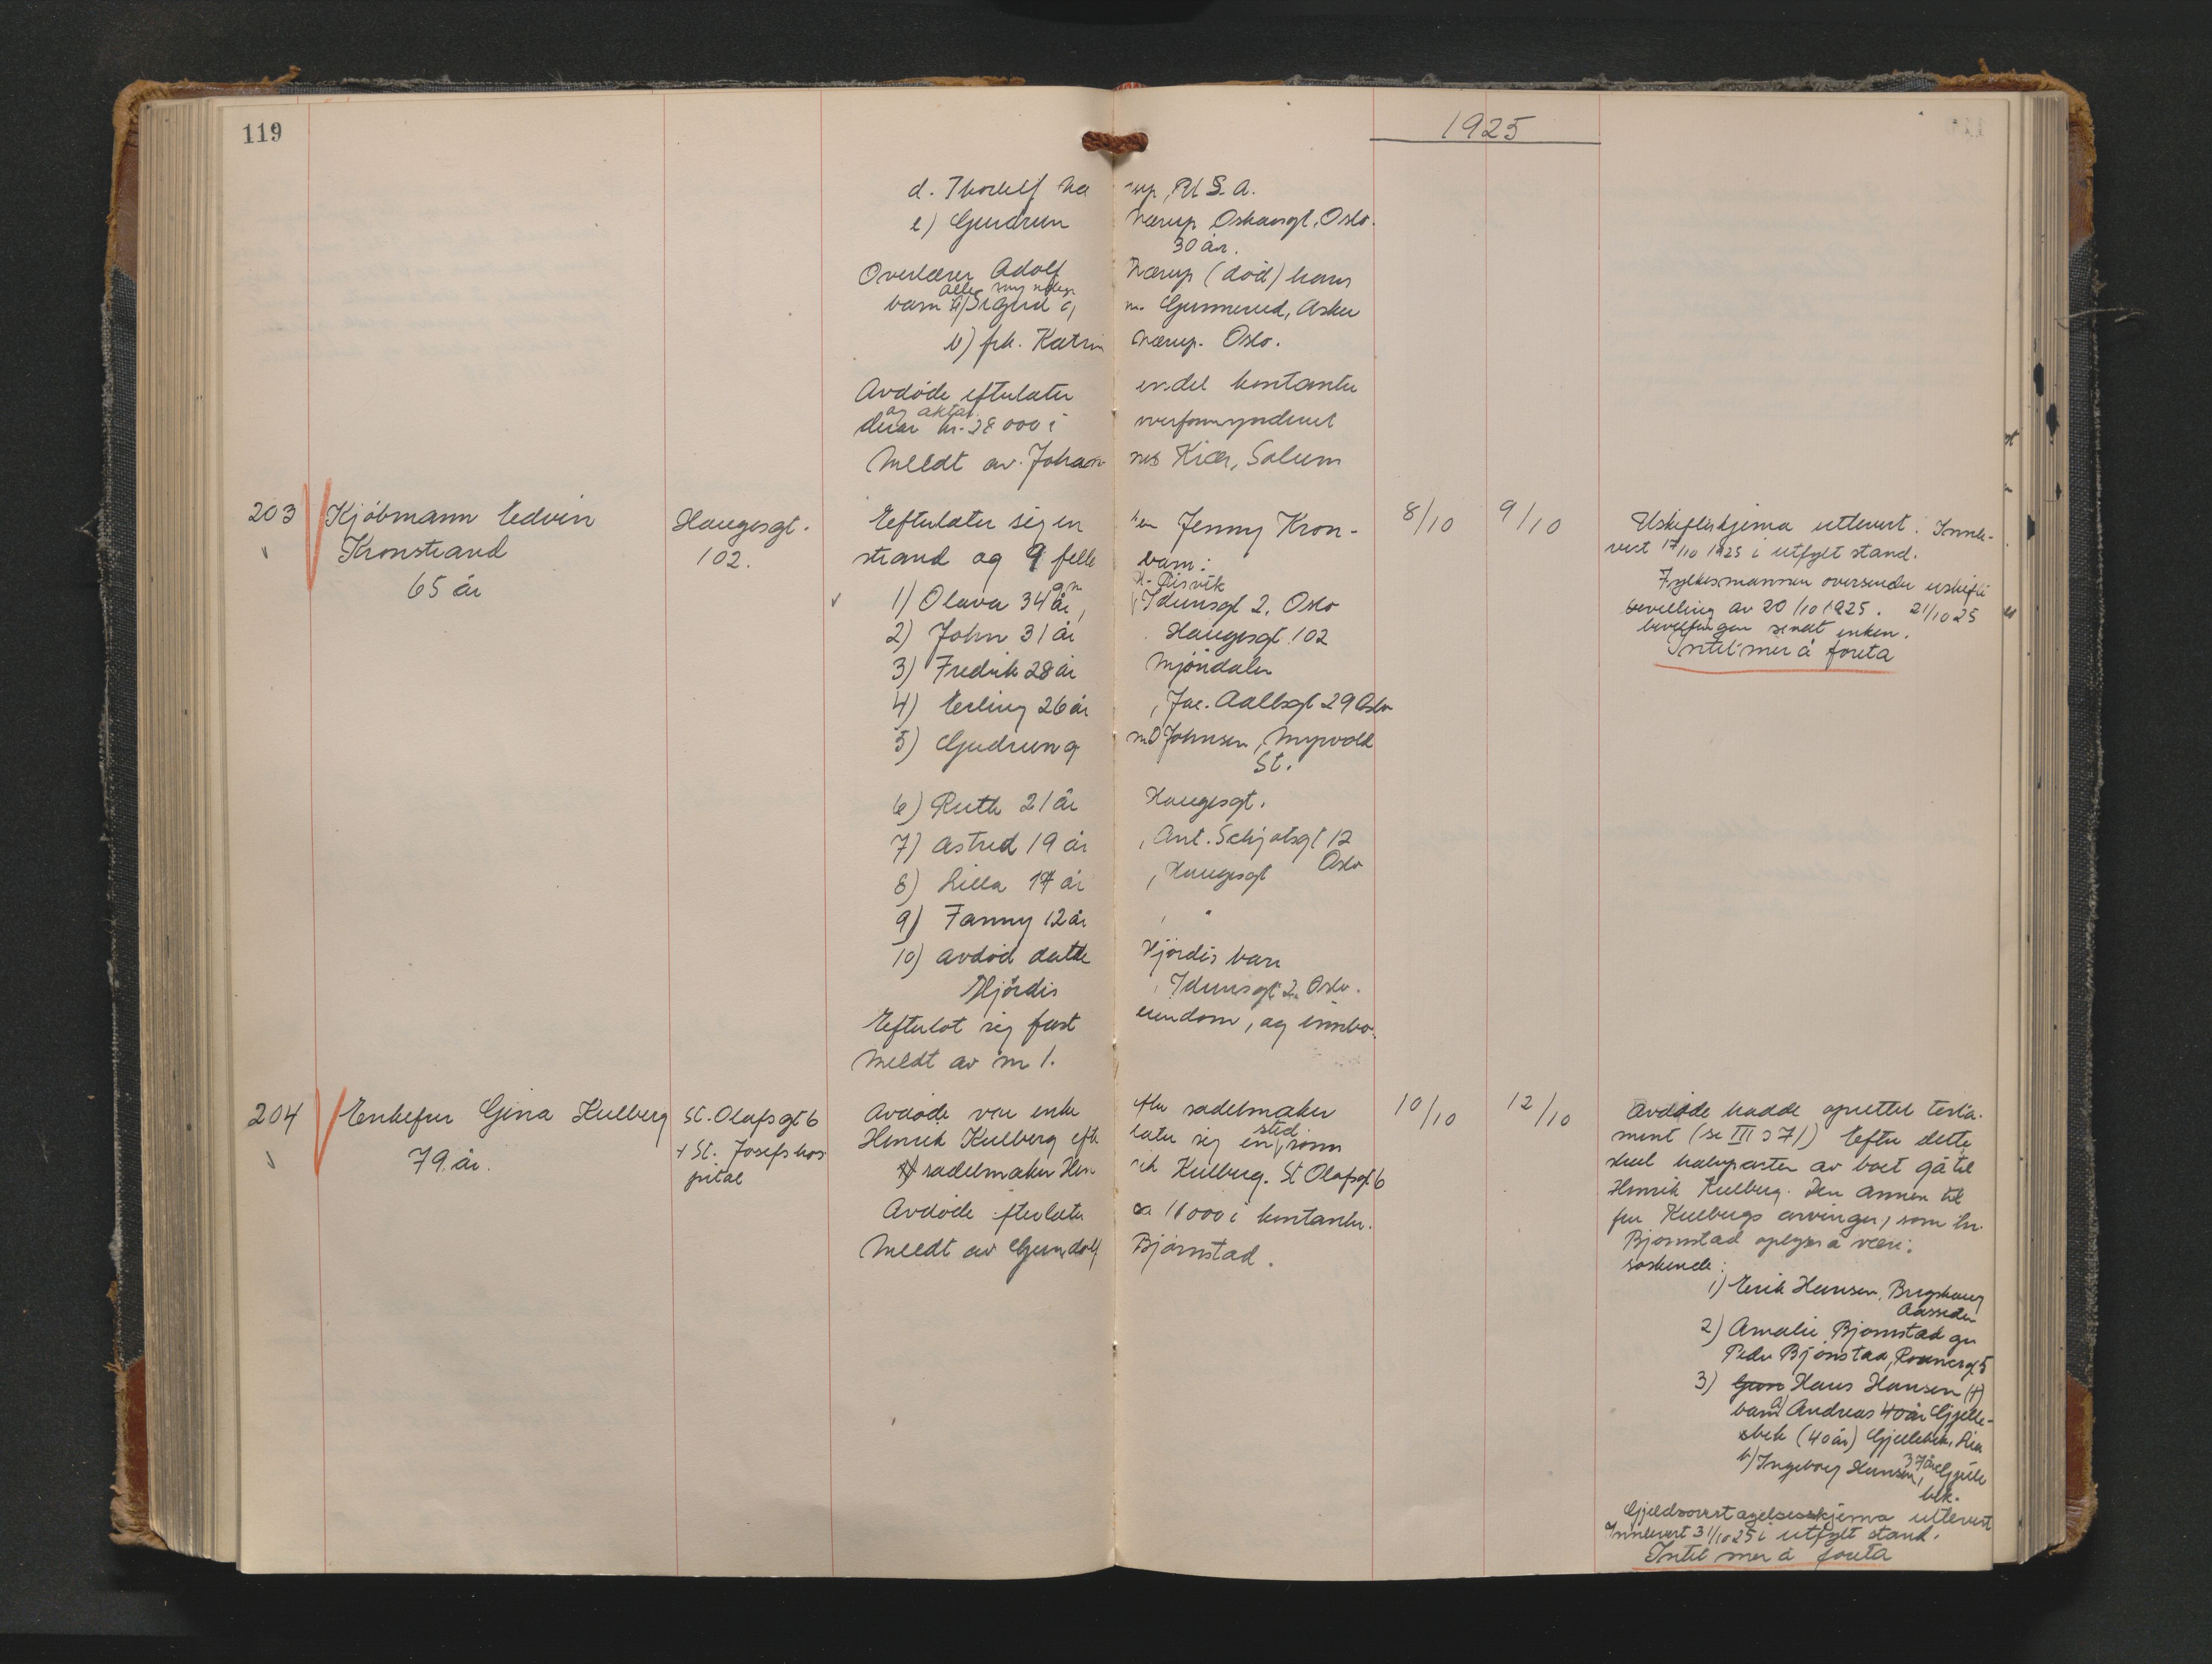 119
1925
d. Thorleif Næ rup, U.S.A.
e) Gudrun Nærup Oskarsgt. Oslo.
30 år.
Overlærer Adolf Nærup (død) hans
alle myndige
barn a) Sigrid g, m. Gunnerud, Asker
b) frk. Katrin Nærup. Oslo.
Avdøde efterlater endel kontanter
og aktier.
derav kr. 28 000 i overformynderiet
Meldt av Johan nes Kiær, Solum
203 Kjøbmann Edvin Haugesgt. Efterlater sig en ke Jenny Kron- 8/10 9/10 Uskifteskjema utlevert. Innle-
Kronstrand 102. strand og 9 felles barn: vert 17/10 1925 i utfylt stand.
65 år 1) Olava 34 år, gm Risvik Idunsgt 2. Oslo Fylkesmannen oversender uskifte
2) John 31 år Haugesgt. 102 bevilling av 20/10 1925. 21/10 25
3) Fredrik 28 år Mjøndalen bevillingen sendt enken.
Intet mer å foreta
4) Erling 26 år, Jac. Aallsgt 29 Oslo
5) Gudrun g m Johnsen, Myrvold
St.
6) Ruth 21 år Haugesgt.
7) Astrid 19 år, Ant. Schjøtsgt 12
Oslo
8) Lilla 17 år, Haugesgt
9) Fanny 12 år, "
10) avdød datter Hjørdis barn
Hjørdis, Idunsgt 2. Oslo.
Efterlot sig fast eiendom, og innbo.
Meldt av nr 1.
204 Enkefru Gina Kulberg St. Olafsgt 6 Avdøde var enke efter sadelmaker 10/10 12/10 Avdøde hadde oprettet testa-
79 år. + St. Josefs hos Henrik Kulberg efter later sig en sted sønn ment (se III 371) Efter dette
pital 1) sadelmaker Hen rik Kulberg. St Olafsgt. 6 skal halvparten av boet gå til
Avdøde efterlater ca 16 000 i kontanter. Henrik Kulberg. Den annen til
Meldt av Gundolf Bjørnstad. fru Kulbergs arvinger, som hr.
Bjørnstad oplyser å være:
søskende:
1) Erik Hansen,
Aassiden
2) Amalie Bjørnstad gm
Peder Bjørnstad, 5
3) Hans Hansen (+)
barn a) Andreas 40 år Gjelle-
bek (40 år) Gjellebek, Lier
b) Ingeborg Hansen, 37 år Gjelle
bek.
Gjeldsovertagelsesskjema utlevert
Innlevert 31/10 25 i utfylt stand.
Intet mer å foreta